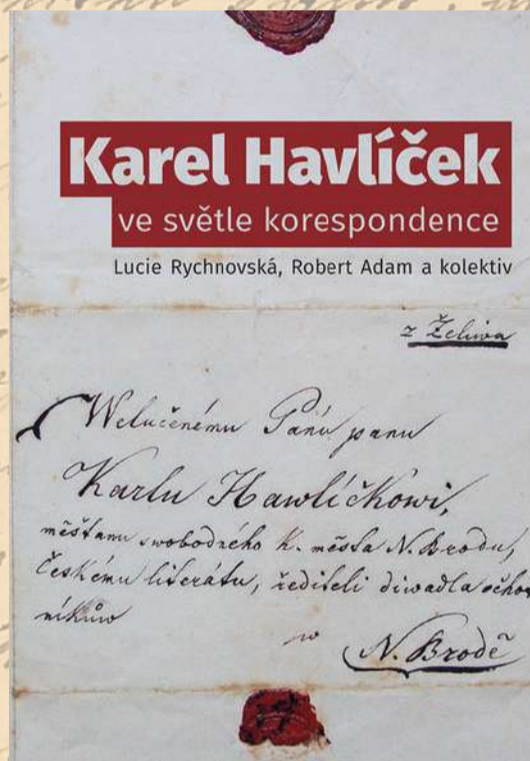 Karel Havlíček
ve světle korespondence
Lucie Rychnovská, Robert Adam a kolektiv
z Želiwa
Welučenému Pánu panu
Karlu Hawlíčkowi,
měšťanu swobodného K. města N. Brodu,
Českému literátu, řediteli diwadla ocho
níkůw
w
N. Brodě